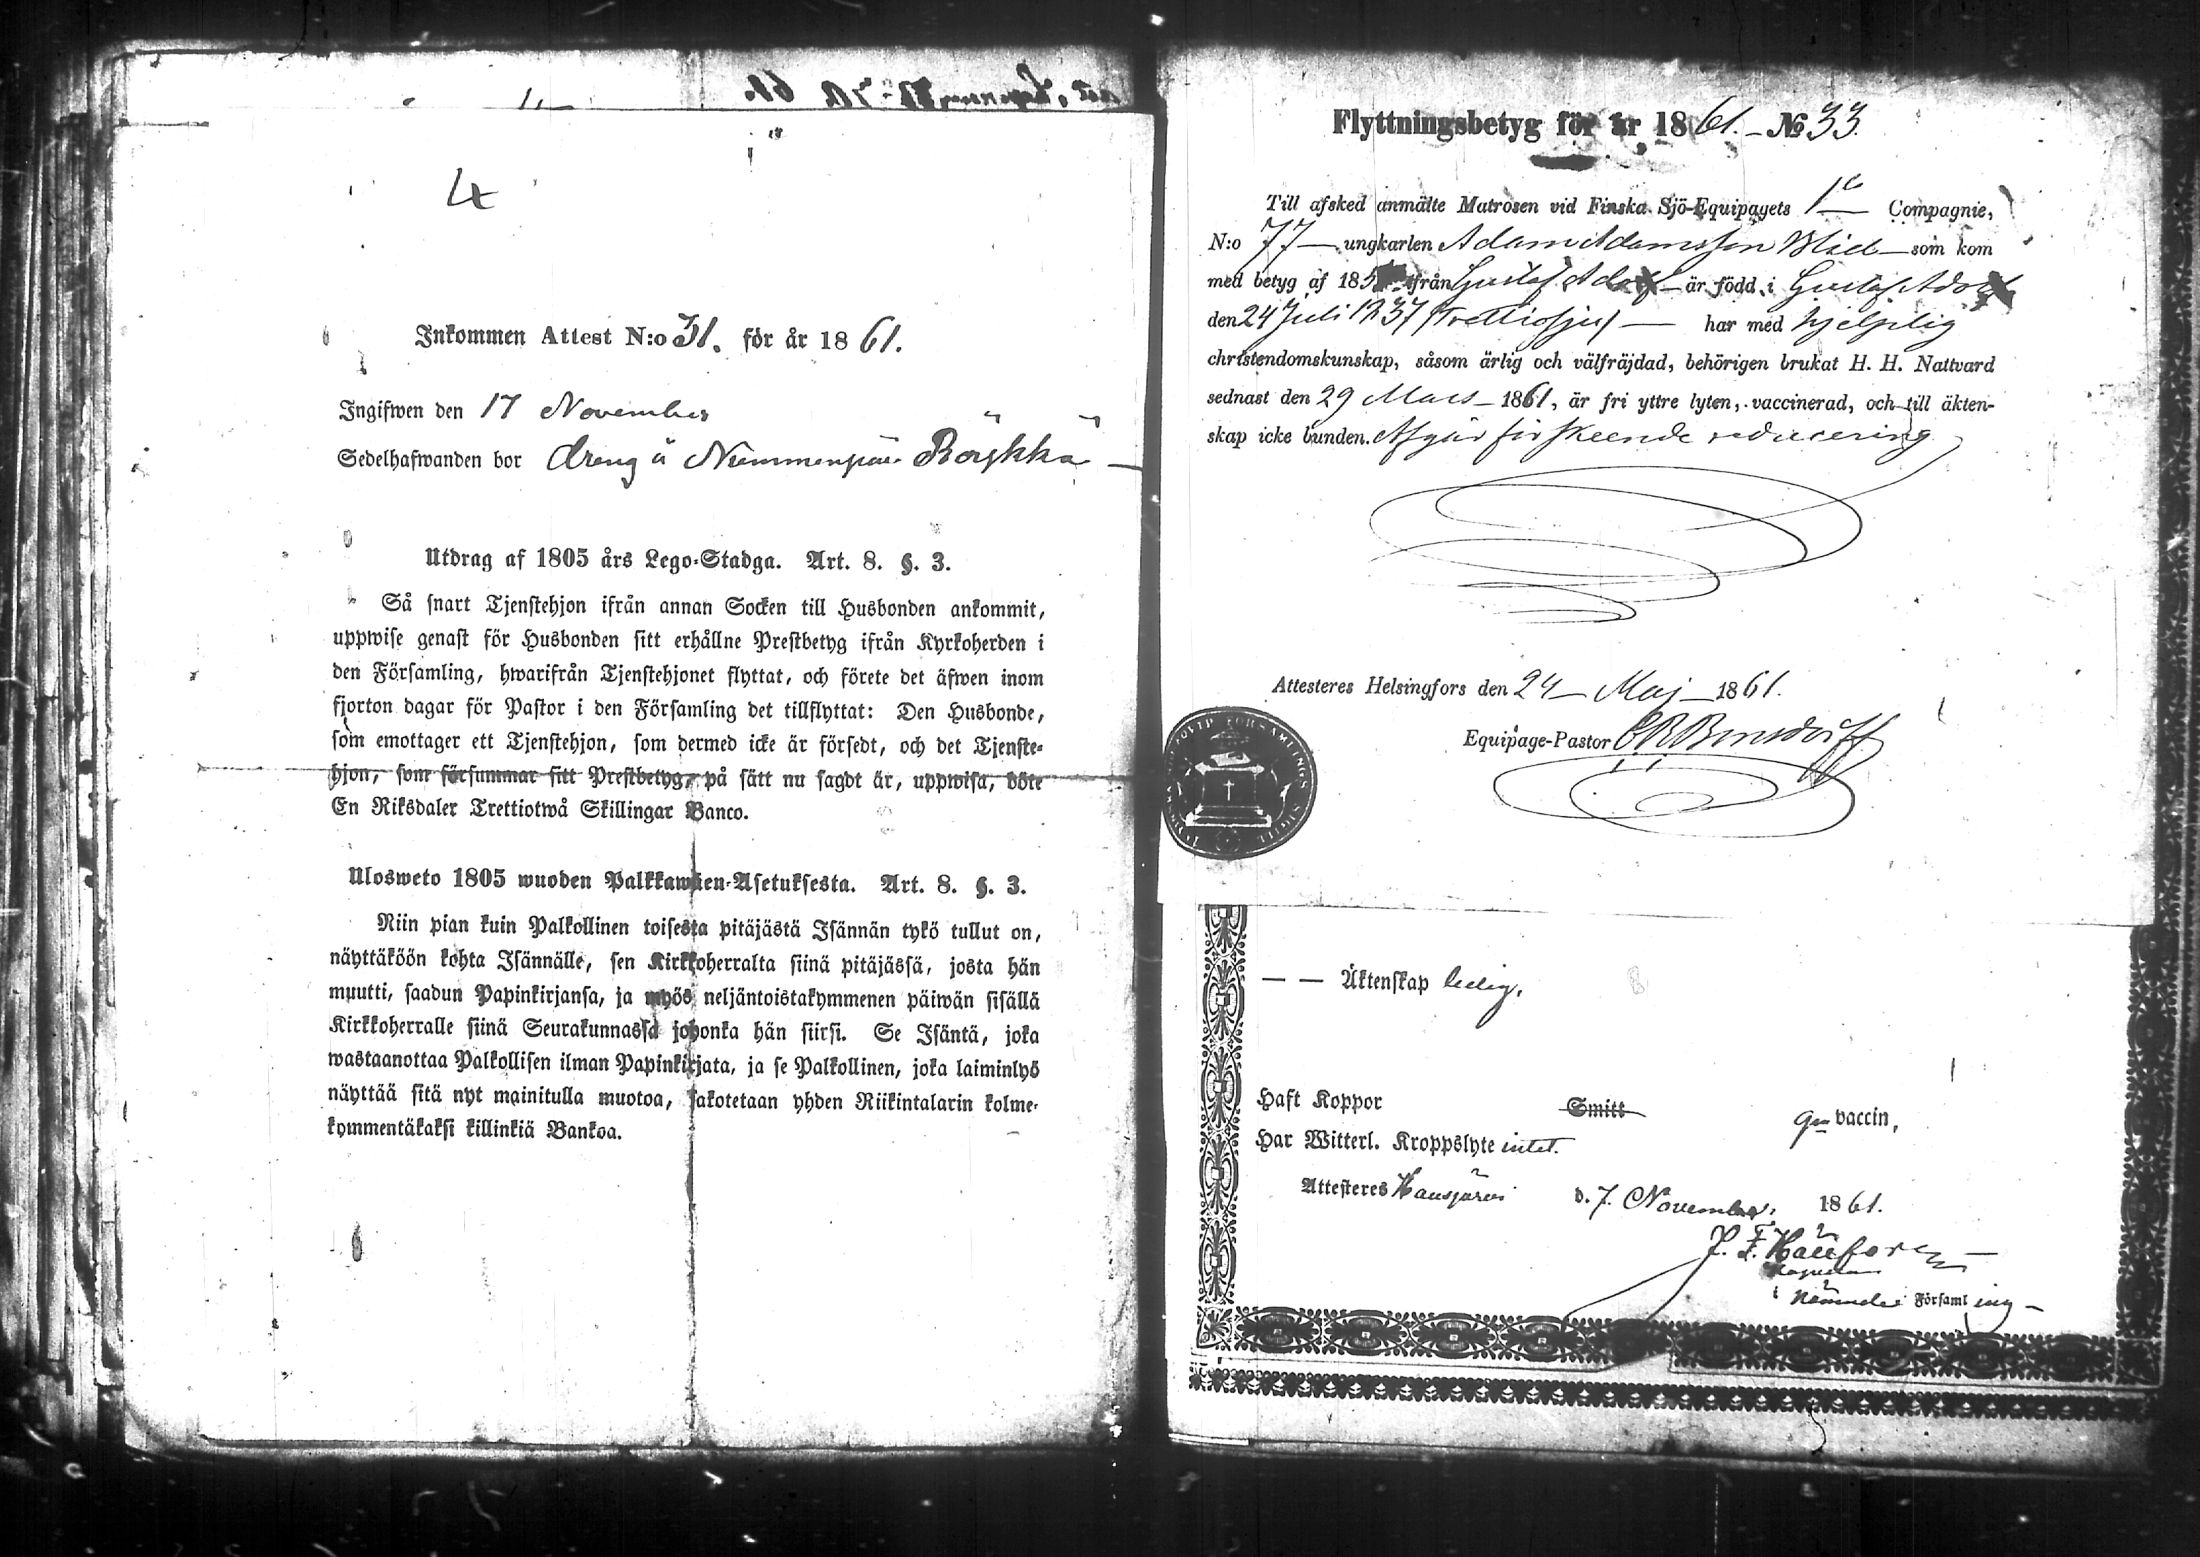 4
Inkommen Attest N:o 31. för år 1861.
Ingifwen den 17 November
Sedelhafwanden bor dreng å Nummenpää Röykkä
Utdrag af 1805 års Lego-Stadga. Art. 8. §. 3.
Så snart Tjenstehjon ifrån annan Socken till Husbonden ankommit,
uppwise genast för Husbonden sitt erhållne Prestbetyg ifrån Kyrkoherden i
den Församling, hwarifrån Tjenstehjonet flyttat, och förete det äfwen inom
fjorton dagar för Pastor i den Församling det tillflyttat: Den Husbonde,
som emottager ett Tjenstehjon, som dermed icke är försedt, och det Tjenste-
hjon, som försummar sitt Prestbetyg, på sätt nu sagdt är, uppwisa, böte
En Riksdaler Trettiotwå Skillingar Banco.
Ulosweto 1805 wuoden Palkkawäen-Asetuksesta. Art. 8. §. 3.
Niin pian kuin Palkollinen toisesta pitäjästä Isännän tykö tullut on,
näyttäköön kohta Isännälle, sen Kirkkoherralta siinä pitäjässä, josta hän
muutti, saadun Papinkirjansa, ja myös neljäntoistakymmenen päiwän sisällä
Kirkkoherralle siinä Seurakunnassa johonka hän siirsi. Se Isäntä, joka
wastaanottaa Palkollisen ilman Papinkirjata, ja se Palkollinen, joka laiminlyö
näyttää sitä nyt mainitulla muotoa, sakotetaan yhden Riikintalarin kolme-
kymmentäkaksi killinkiä Bankoa.
Flyttningsbetyg för år 1861. № 33.
Till afsked anmälte Matrosen vid Finska Sjö-Equipagets 1a Compagnie,
N:o 77 ungkarlen Adam Adamsson som kom
med betyg af 185 ifrån Gustaf Adolf är född i Gustaf Adolf
den 24 Juli 1837 (Trettiosju) har med hjelplig
christendomskunskap, såsom ärlig och välfräjdad, behörigen brukat H. H. Nattvard
sednast den 29 Mars 1861, är fri yttre lyten, vaccinerad, och till äkten-
skap icke bunden. Afgår för skeende reducering
Attesteres Helsingfors den 24 Maj 1861.
Equipage-Pastor
— — Äktenskap ledig,
Haft Koppor Smitt gm vaccin,
Har Witterl. Kroppslyte intet.
Attesteres Hausjärvi d. 7. November 1861.
i nämnde Församling